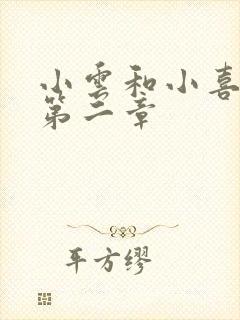 小雪和小喜
第二章
平方缪